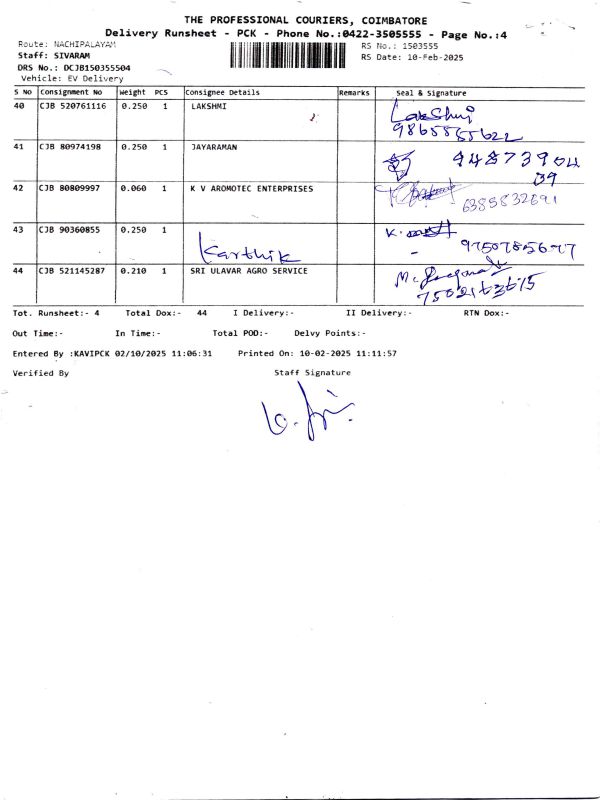 THE PROFESSIONAL COURIERS, COIMBATORE
Delivery Runsheet - PCK - Phone No.:0422-3505555 - Page No.:4
Route: NACHIPALAYAM
RS No.: 1503555
Staff: SIVARAM
RS Date: 10-Feb-2025
DRS No.: DCJB150355504
Vehicle: EV Delivery
S No Consignment No Weight PCS Consignee Details Remarks Seal & Signature
40 CJB 520761116 0.250 1 LAKSHMI Lakshmi
9865555622
41 CJB 80974198 0.250 1 JAYARAMAN 94873904
09
42 CJB 80809997 0.060 1 K V AROMOTEC ENTERPRISES
6385832691
43 CJB 90360855 0.250 1 K.
Karthik
44 CJB 521145287 0.210 1 SRI ULAVAR AGRO SERVICE
Tot. Runsheet:- 4 Total Dox:- 44 I Delivery:- II Delivery:- RTN Dox:-
Out Time:- In Time:- Total POD:- Delvy Points:-
Entered By :KAVIPCK 02/10/2025 11:06:31 Printed On: 10-02-2025 11:11:57
Verified By Staff Signature